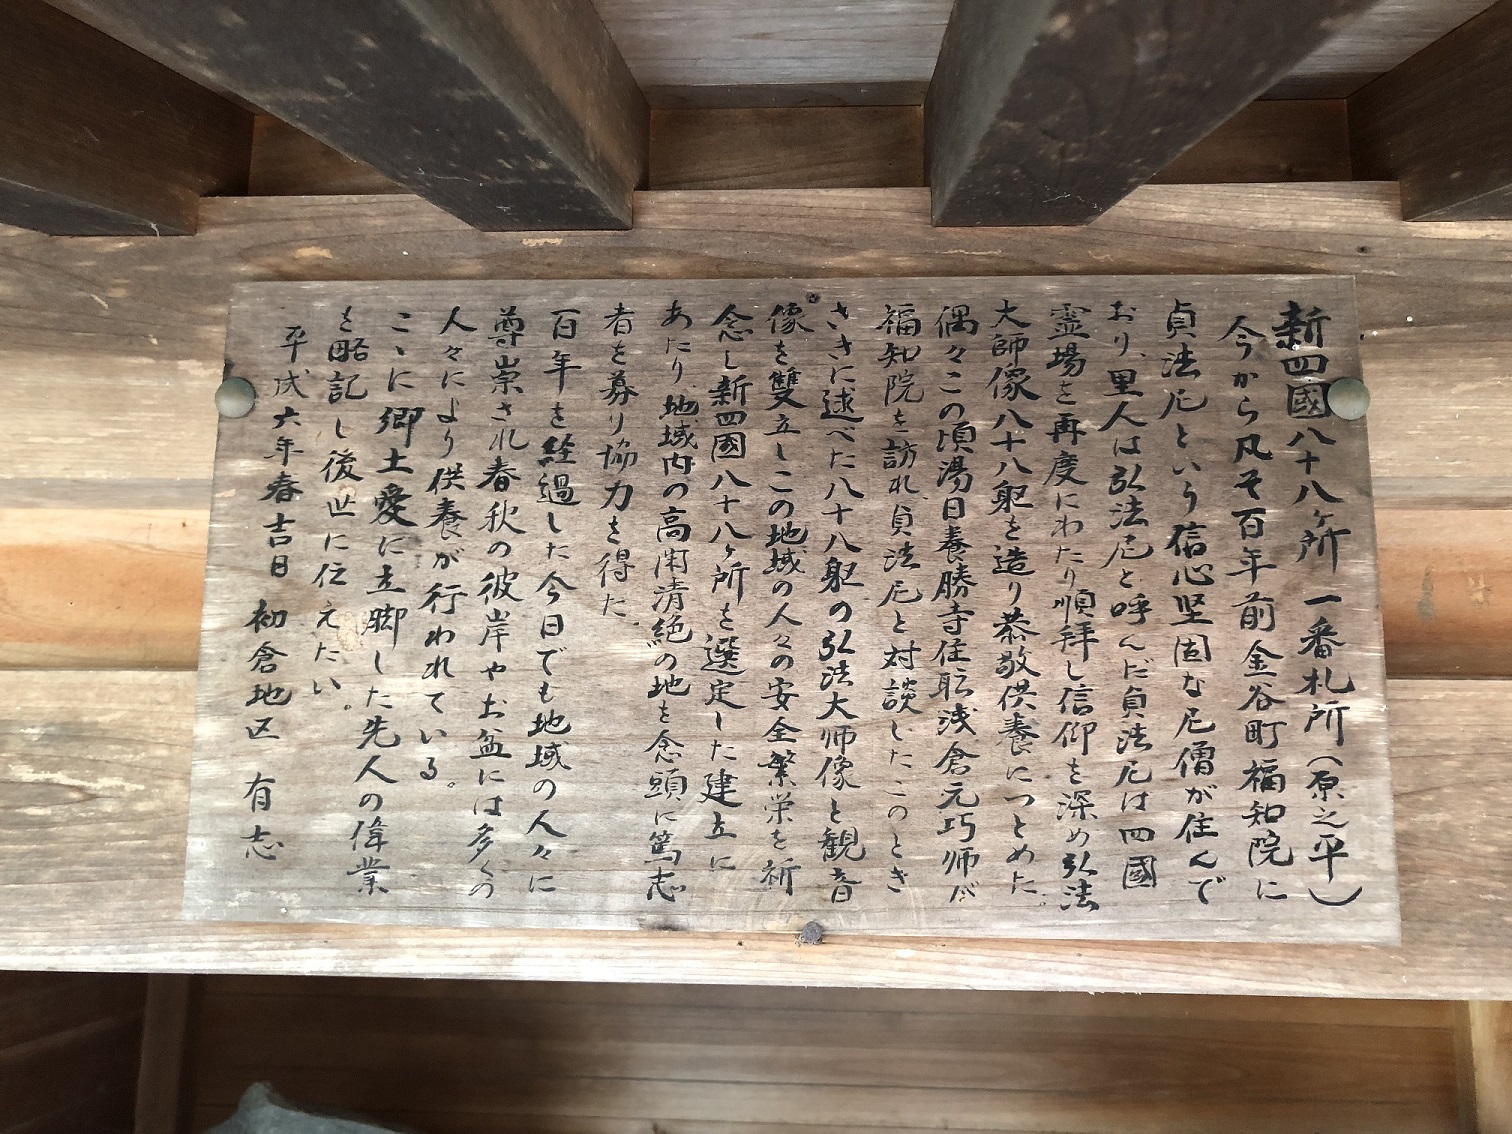 新四國八十八ヶ所 一番札所(原之平)
今から凡そ百年前金谷町福知院に
貞法尼という信心堅固な尼僧が住んで
おり、里人は弘法尼と呼んだ貞法尼は四國
霊場を再度にわたり順拝し信仰を深め弘法
大師像八十八躯を造り恭敬供養につとめた。
偶々この頃湯日養勝寺住職浅倉元巧师が
福知院を訪れ、貞法尼と対談したこのとき
さきに述べた八十八躯の弘法大师像と観音
像を雙立しこの地域の人々の安全繁栄を祈
念し新四國八十八ヶ所を選定した建立に
あたり地域内の高闲清絶の地を念頭に篤志
者を募り協力を得た
百年を経過した今日でも地域の人々に
尊崇され春秋の彼岸やお盆には多くの
人々により供養が行われている。
こゝに郷土愛に立脚した先人の偉業
を略記し後世に伝えたい。
平成六年春吉日 初倉地区 有志